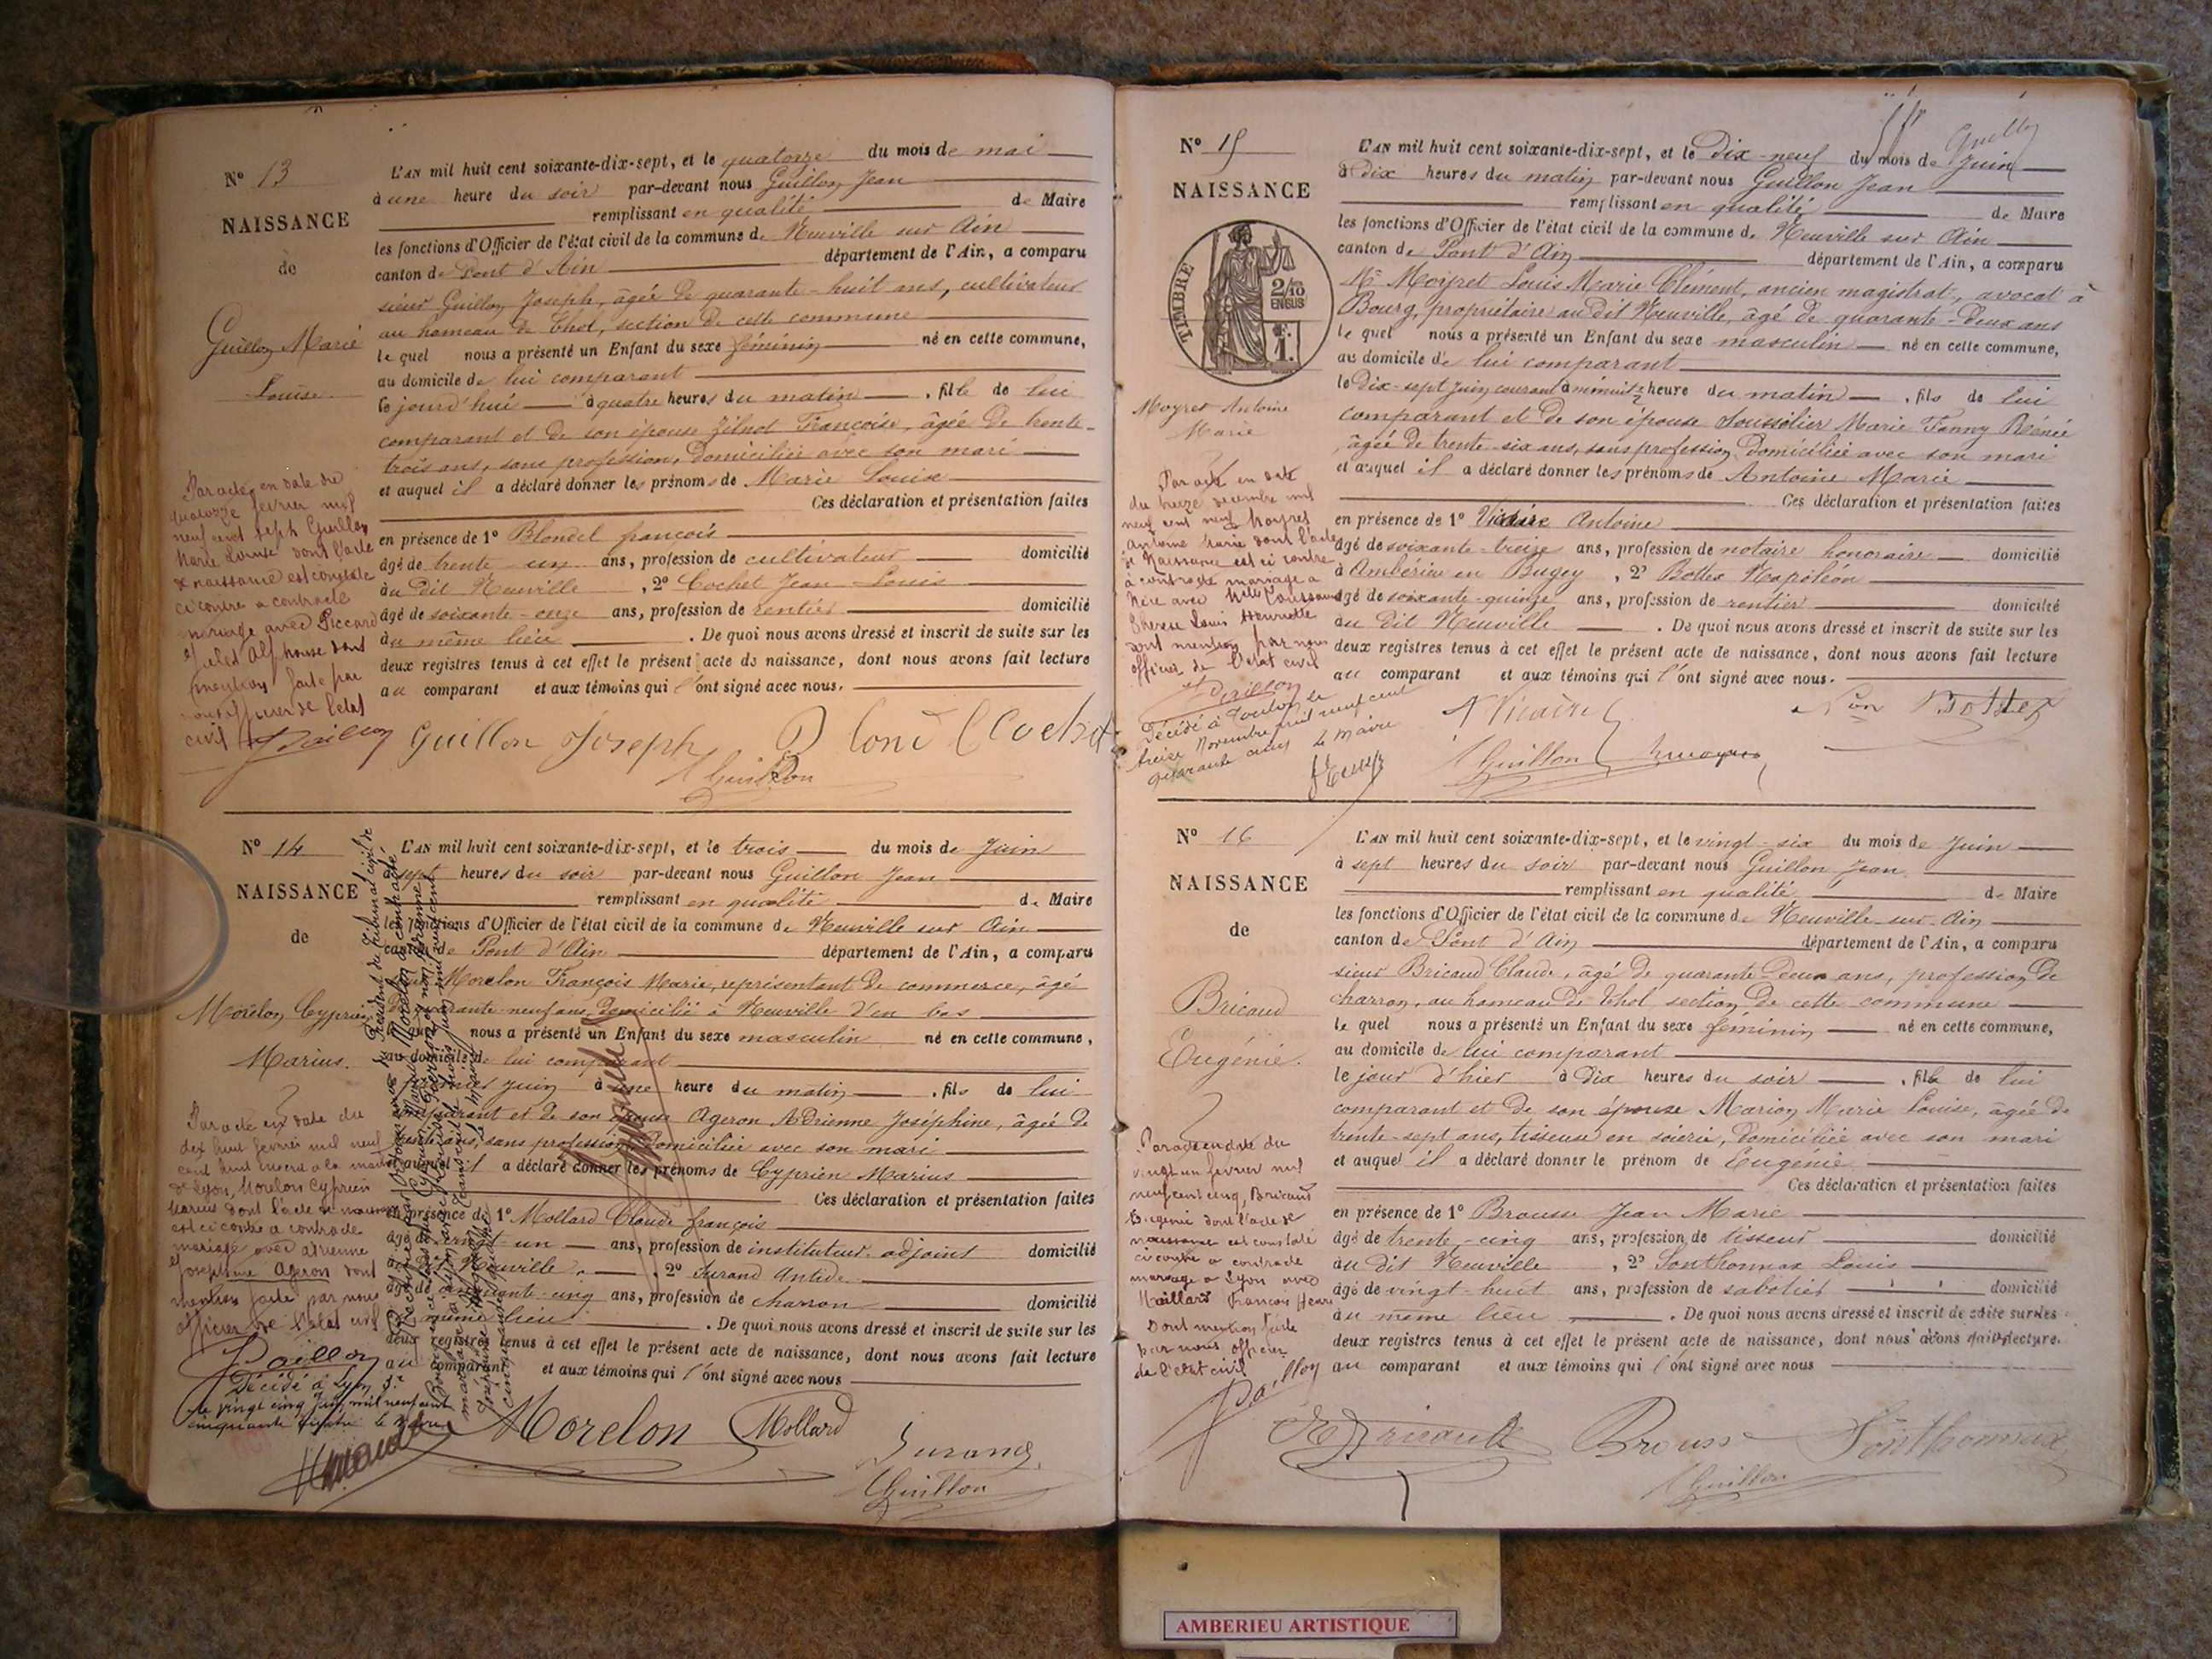 N° 13
NAISSANCE
de
Guillon Marie
Louise.
L'AN mil huit cent soixante-dix-sept, et le quatorze du mois de mai
à une heure du soir par-devant nous Guillon Jean
remplissant en qualité de Maire
les fonctions d'Officier de l'état civil de la commune de Neuville sur Ain
canton de Pont d'Ain département de l'Ain, a comparu
sieur Guillon Joseph, âgé de quarante-huit ans, cultivateur
au hameau de Thol, section de cette commune
le quel nous a présenté un Enfant du sexe féminin né en cette commune,
au domicile de lui comparant
le jourd'hui à quatre heures du matin, fille de lui
comparant et de son épouse Françoise, âgée de trente-
trois ans, sans profession, domiciliée avec son mari
et auquel il a déclaré donner les prénoms de Marie Louise
Ces déclaration et présentation faites
en présence de 1° Blondel françois
âgé de trente-un ans, profession de cultivateur domicilié
au dit Neuville, 2° Cochet Jean Louis
âgé de soixante-onze ans, profession de rentier domicilié
au même lieu. De quoi nous avons dressé et inscrit de suite sur les
deux registres tenus à cet effet le présent acte de naissance, dont nous avons fait lecture
au comparant et aux témoins qui l'ont signé avec nous.
Par acte en date du
quatorze février mil
neuf cent sept Guillon
Marie Louise dont l'acte
de naissance est constaté
ci contre a contracté
mariage avec Piccard
Alphonse dont
mention faite par
nous officier de l'état
civil
Guillon Joseph Blond Cochet
Guillon
N° 14
NAISSANCE
de
Morelon Cyprien
Marius.
L'AN mil huit cent soixante-dix-sept, et le trois du mois de Juin
à sept heures du soir par-devant nous Guillon Jean
remplissant en qualité de Maire
les fonctions d'Officier de l'état civil de la commune de Neuville sur Ain
canton de Pont d'Ain département de l'Ain, a comparu
Morelon François Marie, représentant de commerce, âgé
de quarante-neuf ans, domicilié à Neuville d'en bas
le quel nous a présenté un Enfant du sexe masculin né en cette commune,
au domicile de lui comparant
juin à une heure du matin, fils de lui
comparant et de son épouse Ageron Adrienne Joséphine, âgée de
ans, sans profession, domiciliée avec son mari
et auquel il a déclaré donner les prénoms de Cyprien Marius
Ces déclaration et présentation faites
en présence de 1° Mollard Claude françois
âgé de vingt-un ans, profession de instituteur-adjoint domicilié
Neuville, 2° Durand Antide
âgé de cinquante-cinq ans, profession de charron domicilié
au même lieu. De quoi nous avons dressé et inscrit de suite sur les
deux registres tenus à cet effet le présent acte de naissance, dont nous avons fait lecture
au comparant et aux témoins qui l'ont signé avec nous
Par acte en date du
dix huit février mil neuf
cent huit inscrit à la mairie
de Lyon, Morelon Cyprien
Marius dont l'acte de naissance
est ci contre a contracté
mariage avec Adrienne
Joséphine Ageron dont
mention faite par nous
officier de l'état civil
Décédé à Lyon
le vingt cinq Juin mil neuf cent
cinquante le Maire
Morelon Mollard
Durand
Guillon
N° 15
NAISSANCE
TIMBRE
2/10
EN SUS
1 F.
Moyret Antoine
Marie
L'AN mil huit cent soixante-dix-sept, et le Dix-neuf du mois de Juin
à Dix heures du matin par-devant nous Guillon Jean
remplissant en qualité de Maire
les fonctions d'Officier de l'état civil de la commune de Neuville sur Ain
canton de Pont d'Ain département de l'Ain, a comparu
Mr Moyret Louis Marie Clément, ancien magistrat, avocat à
Bourg, propriétaire au dit Neuville, âgé de quarante-deux ans
le quel nous a présenté un Enfant du sexe masculin né en cette commune,
au domicile de lui comparant
le Dix-sept Juin courant à minuit ½ heure du matin, fils de lui
comparant et de son épouse Marie Fanny Rénée
âgée de trente-six ans, sans profession, domiciliée avec son mari
et auquel il a déclaré donner les prénoms de Antoine Marie
Ces déclaration et présentation faites
en présence de 1° Vicaire Antoine
âgé de soixante-treize ans, profession de notaire honoraire domicilié
à Ambérieu en Bugey, 2° Bottex Napoléon
âgé de soixante-quinze ans, profession de rentier domicilié
au dit Neuville. De quoi nous avons dressé et inscrit de suite sur les
deux registres tenus à cet effet le présent acte de naissance, dont nous avons fait lecture
au comparant et aux témoins qui l'ont signé avec nous.
Par acte en date
du treize décembre mil
neuf cent neuf Moyret
Antoine Marie dont l'acte
de Naissance est ci contre
a contracté mariage à
avec
Louis Henriette
dont mention par nous
officier de l'état civil
Décédé à Toulon le
treize Novembre mil neuf cent
quarante cinq Le Maire
A Vicaire Non Bottex
Guillon Moyret
N° 16
NAISSANCE
de
Bricaud
Eugénie.
L'AN mil huit cent soixante-dix-sept, et le vingt-six du mois de Juin
à sept heures du soir par-devant nous Guillon Jean
remplissant en qualité de Maire
les fonctions d'Officier de l'état civil de la commune de Neuville-sur-Ain
canton de Pont d'Ain département de l'Ain, a comparu
sieur Bricaud Claude, âgé de quarante deux ans, profession de
charron, au hameau de Thol section de cette commune
le quel nous a présenté un Enfant du sexe féminin né en cette commune,
au domicile de lui comparant
le jour d'hier à Dix heures du soir, fille de lui
comparant et de son épouse Marion Marie Louise, âgée de
trente-sept ans, tisseuse en soierie, domiciliée avec son mari
et auquel il a déclaré donner le prénom de Eugénie
Ces déclaration et présentation faites
en présence de 1° Brousse Jean Marie
âgé de trente-cinq ans, profession de tisseur domicilié
au dit Neuville, 2° Sonthonnax Louis
âgé de vingt-huit ans, profession de sabotier domicilié
au même lieu. De quoi nous avons dressé et inscrit de suite sur les
deux registres tenus à cet effet le présent acte de naissance, dont nous avons fait lecture.
au comparant et aux témoins qui l'ont signé avec nous
Par acte en date du
vingt un février mil
neuf cent cinq, Bricaud
Eugénie dont l'acte de
naissance est constaté
ci contre a contracté
mariage à Lyon avec
Maillard François Henri
Dont mention faite
par nous officier
de l'état civil
Bricaud Brousse Sonthonnax
Guillon
AMBERIEU ARTISTIQUE